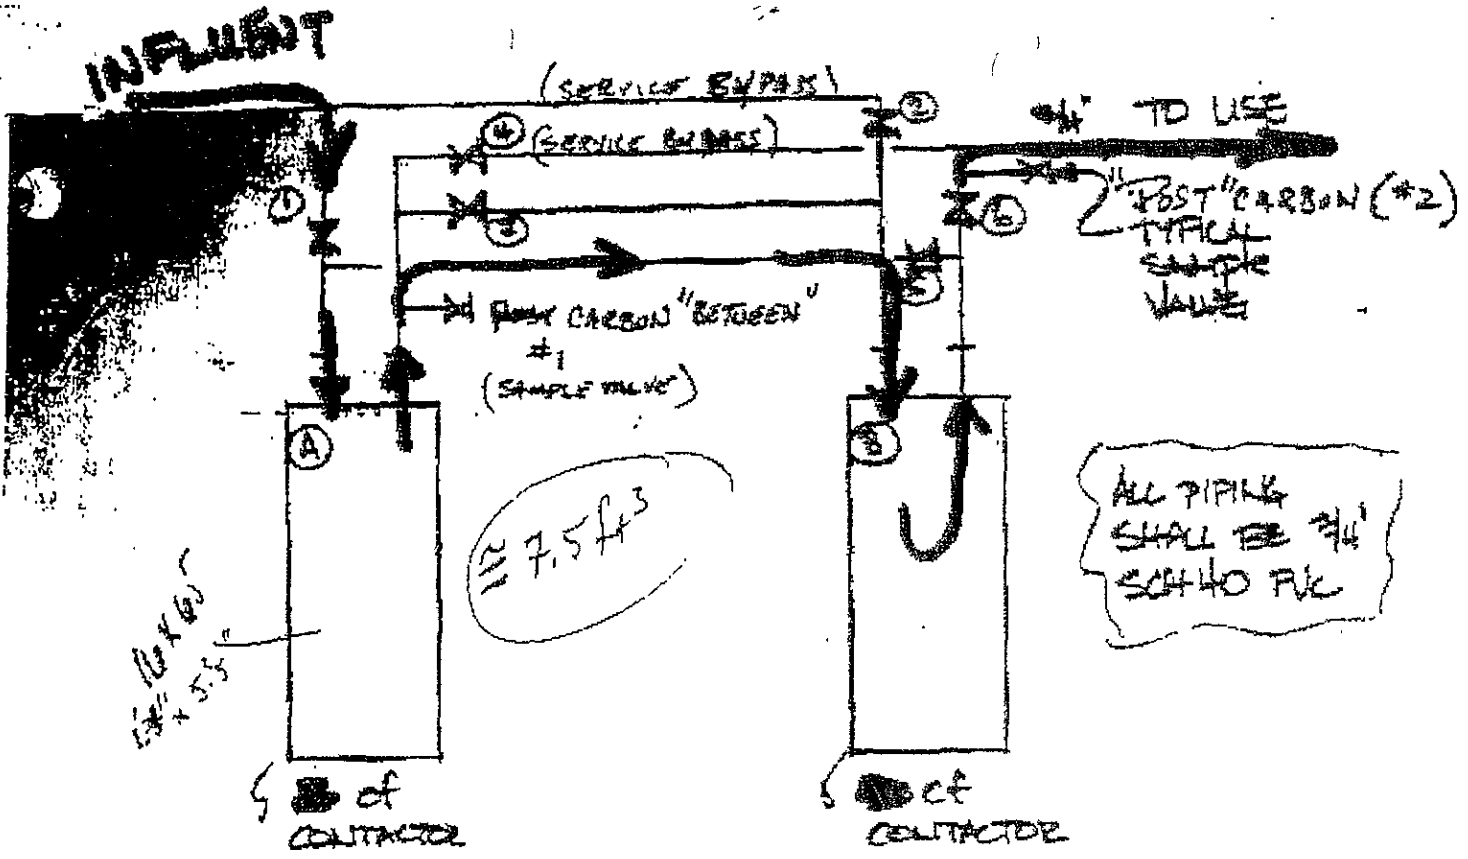 INFLUENT
(SERVICE BYPASS)
②
④ (SERVICE BYPASS)
3/4" TO USE
①
⑥
"POST" CARBON (#2)
TYPICAL
SAMPLE
VALVE
⑤
POST CARBON "BETWEEN"
#1
(SAMPLE VALVE)
Ⓐ
Ⓑ
≅ 7.5 ft³
ALL PIPING
SHALL BE 3/4"
SCH 40 PVC
16 x 65
cf
CONTACTOR
cf
CONTACTOR